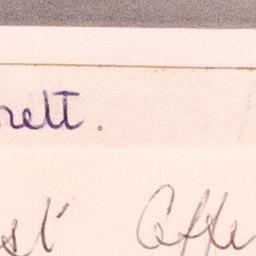 rett.
st' Coffe